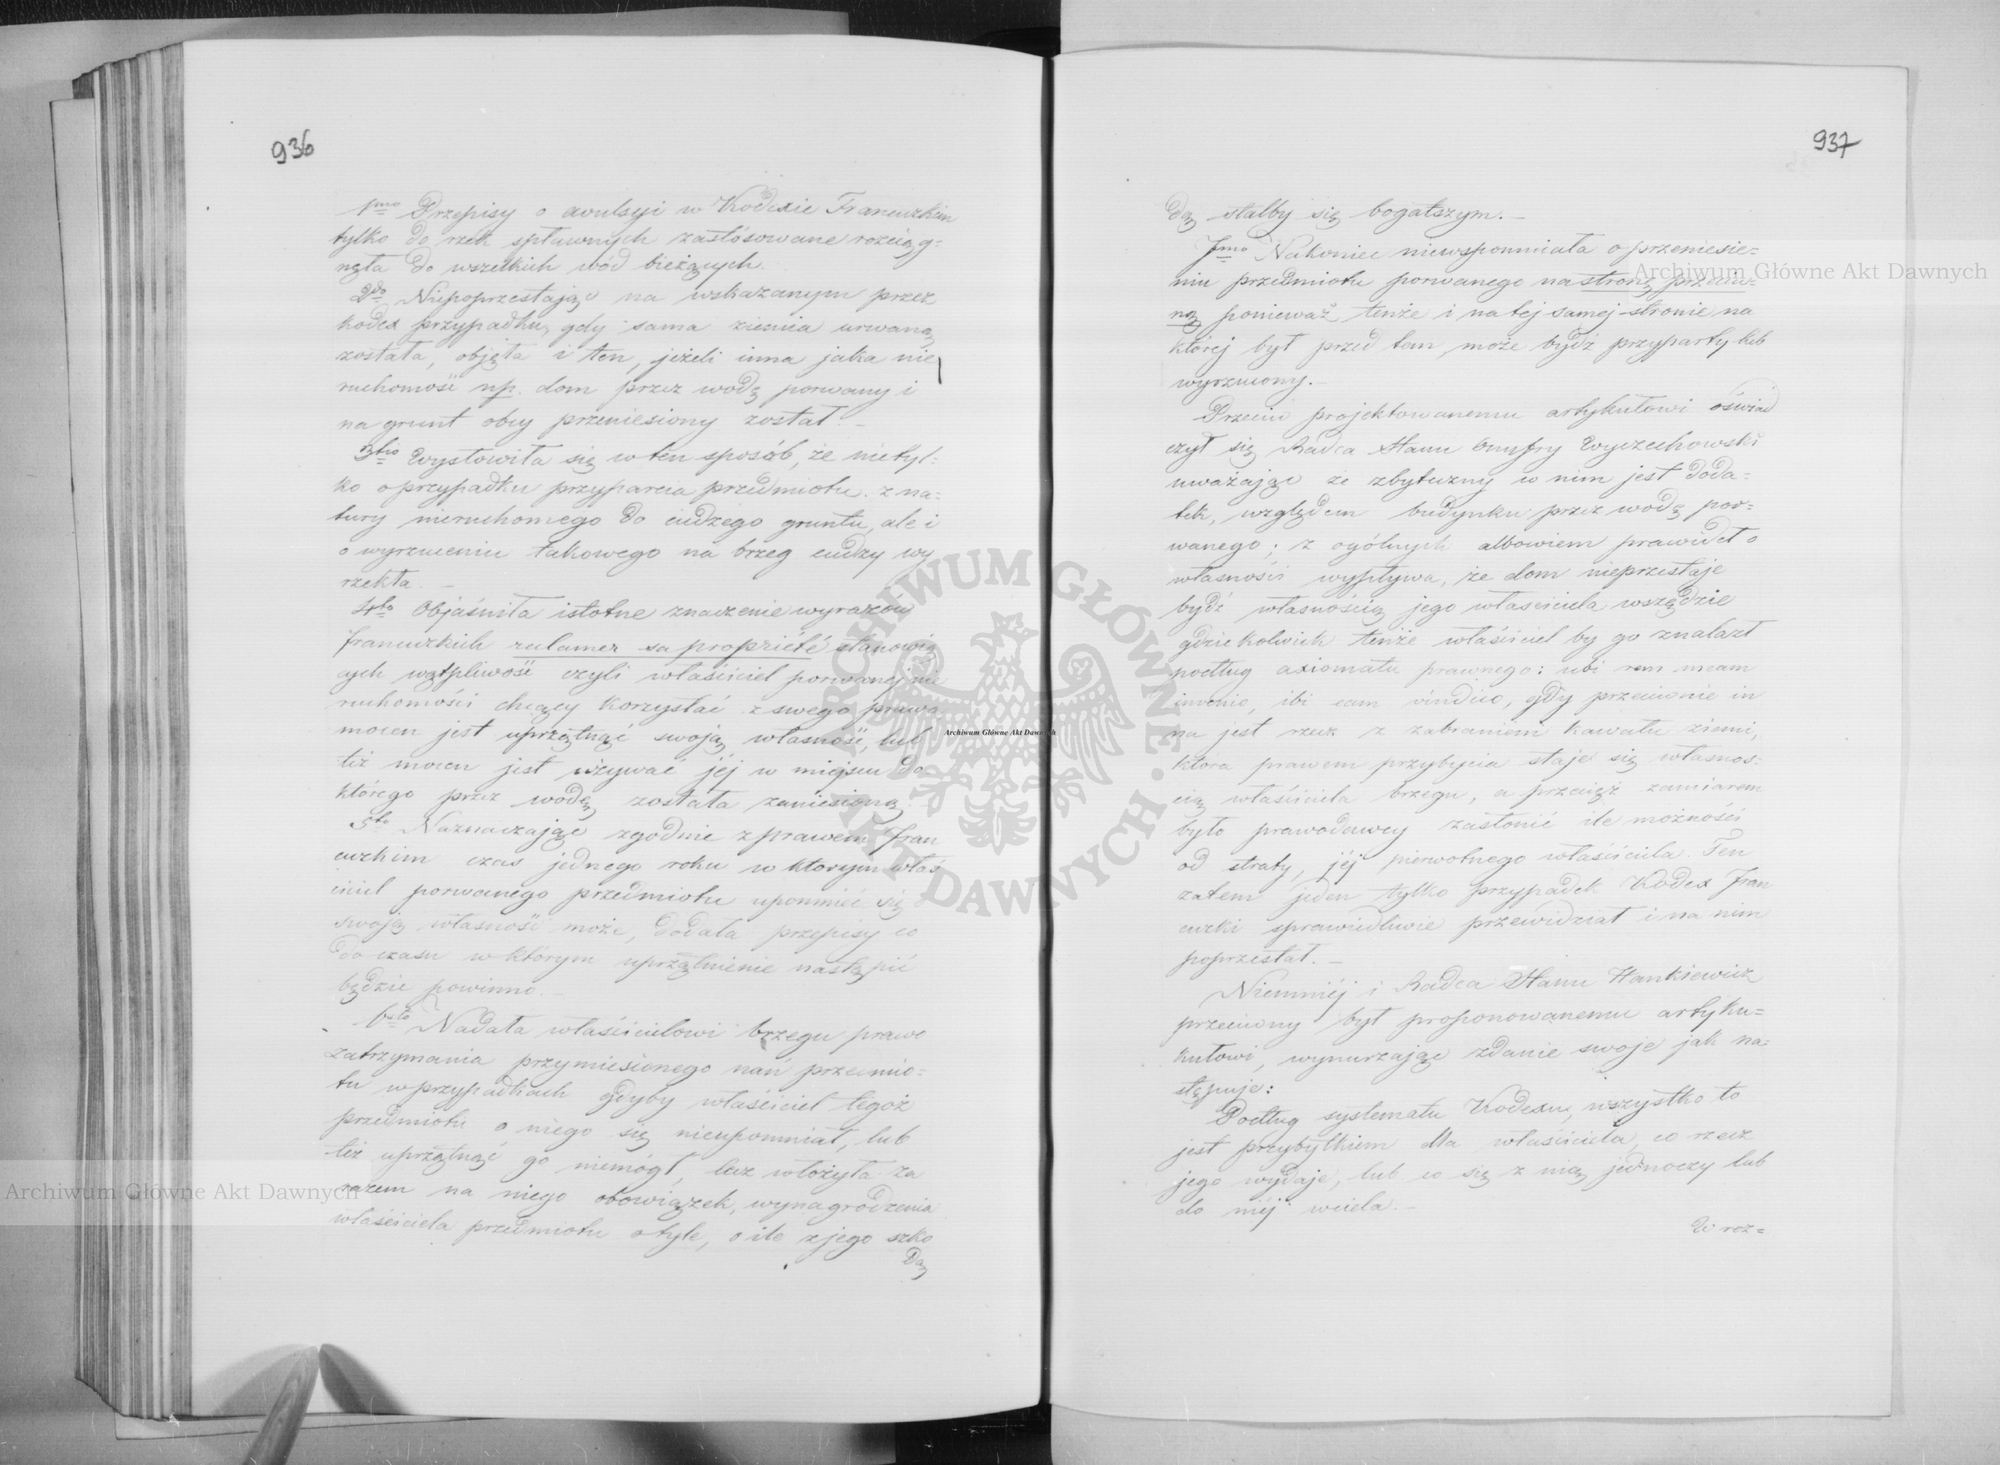 936
1mo Przepisy o avulsyi w Kodexie Francuzkim
tylko do rzek spławnych zastósowane rozciąg=
nęła do wszelkich wód bieżących.
2do Niepoprzestając na wskazanym przez
kodex przypadku, gdy sama ziemia urwaną
została, objęła i ten, jeżeli inna jaka nie
ruchomość np. dom przez wodę porwany i
na grunt obcy przeniesiony został. –
3tio Wysłowiła się w ten sposób, że nietyl=
ko o przypadku przyparcia przedmiotu z na=
tury nieruchomego do cudzego gruntu, ale i
o wyrzuceniu takowego na brzeg cudzy wy
rzekła. –
4to Objaśniła istotne znaczenie wyrazów
francuzkich reclamer sa propriété stanowią
cych wątpliwość czyli właściciel porwanej nie
ruchomości chcący korzystać z swego prawa
mocen jest uprzątnąć swoją własność, lub
też mocen jest używać jéj w miejscu do
którego przez wodę została zaniesioną.
5to Naznaczając zgodnie z prawem fran
cuzkim czas jednego roku w którym właś
ciciel porwanego przedmiotu upomnieć się o
swoją własność może, dodała przepisy co
do czasu w którym uprzątnienie nastąpić
będzie powinno. –
6to Nadała właścicielowi brzegu prawo
zatrzymania przyniesionego nań przedmio=
tu w przypadkach gdyby właściciel tegoż
przedmiotu o niego się nieupomniał, lub
też uprzątnąć go niemógł, lecz włożyła za
razem na niego obowiązek, wynagrodzenia
właściciela przedmiotu o tyle, o ile z jego szko
dą
937
dą stałby się bogatszym. –
7mo Nakoniec niewspomniała o przeniesie=
niu przedmiotu porwanego na stronę przeciw=
ną ponieważ tenże i na tej samej stronie na
której był przed tem, może bydź przyparty lub
wyrzucony. –
Przeciw projektowanemu artykułowi oświad
czył się Radca Stanu Onufry Wyczechowski
uważając że zbyteczny w nim jest doda=
tek, względem budynku przez wodę por=
wanego; z ogólnych albowiem prawideł o
własności wypływa, że dom nieprzestaje
bydź własnością jego właściciela wszędzie
gdziekolwiek tenże właściciel by go znalazł
podług axiomatu prawnego: ubi rem meam
invenio, ibi eam vindico, gdy przeciwnie in
na jest rzecz z zabraniem kawału ziemi,
która prawem przybycia staje się własnoś=
cią właściciela brzegu, a przecież zamiarem
było prawodawcy zasłonić ile możności
od straty, jéj pierwotnego właściciela. Ten
zatem jeden tylko przypadek Kodex fran
cuzki sprawiedliwie przewidział i na nim
poprzestał. –
Niemniéj i Radca Stanu Hankiewicz
przeciwny był proponowanemu artyku=
kułowi, wynurzając zdanie swoje jak na=
stępuje:
Podług systematu Kodexu, wszystko to
jest przybytkiem dla właściciela, co rzecz
jego wydaje, lub co się z nią jednoczy lub
do niéj wciela. –
W roz=
Archiwum Główne Akt Dawnych
Archiwum Główne Akt Dawnych
Archiwum Główne Akt Dawnych
ARCHIWUM GŁÓWNE AKT DAWNYCH